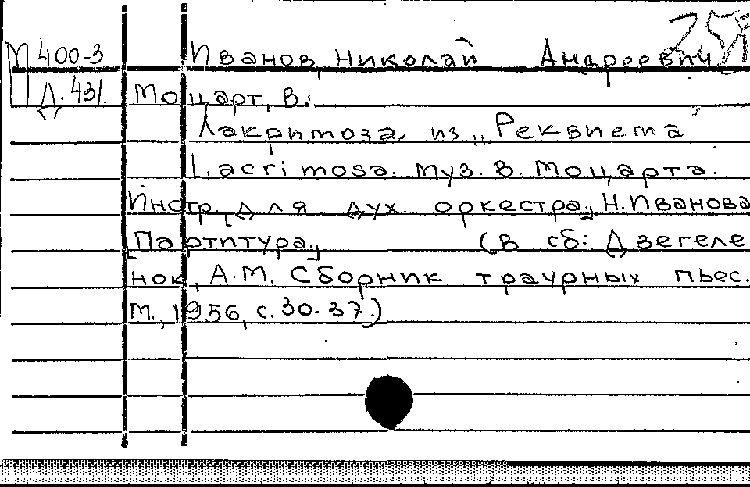 М 400-3 Иванов, Николай Андреевич
Д. 431 Моцарт, В.
Лакримоза из „Реквиема"
Lacrimosa. Муз. В. Моцарта.
Инстр. для дух оркестра Н. Иванова
[Партитура] (в сб: Дзегеле
нок, А.М. Сборник траурных пьес.
М., 1956, с. 30-37.)